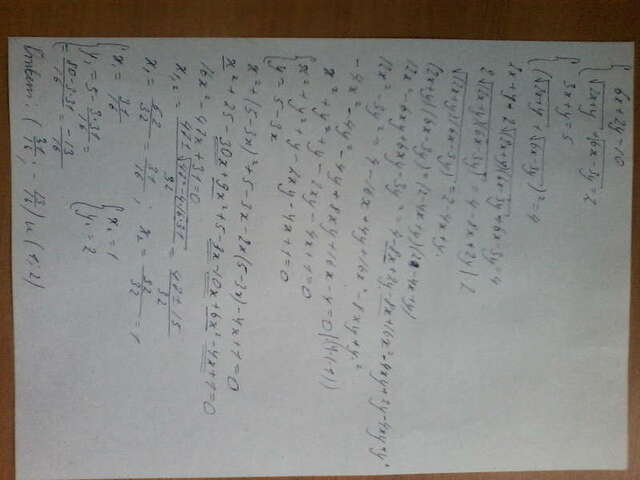 {6x+2y=10
{√(2x+y) + √(6x-3y) = 2
{3x+y=5
{(√(2x+y) + √(6x-3y))²=4
2x+y+2√((2x+y)(6x-3y))+6x-3y=4
2√((2x+y)(6x-3y)) = 4-8x+2y |:2
√((2x+y)(6x-3y)) = 2-4x+y
(2x+y)(6x-3y) = (2-4x+y)(2-4x+y)
12x²-6xy+6xy-3y² = 4-8x+2y-8x+16x²-4xy+2y-4xy+y²
12x²-3y² = 4-16x+4y+16x²-8xy+y²
-4x²-4y²-4y+8xy+16x-4=0 |:(-4)
x²+y²+y-2xy-4x+1=0
{x²+y²+y-2xy-4x+1=0
{y=5-3x
x²+(5-3x)²+5-3x-2x(5-3x)-4x+1=0
x²+25-30x+9x²+5-3x-10x+6x²-4x+1=0
16x²-47x+31=0
x₁,₂ = (47±√(47²-4·16·31))/32 = (47±15)/32
x₁ = 62/32 = 31/16; x₂ = 32/32 = 1
{x₁ = 31/16 {x₂ = 1
{y₁ = 5 - 3·31/16 = {y₂ = 2
= (80-3·31)/16 = -13/16
Ответ: (31/16; -13/16) и (1;2)